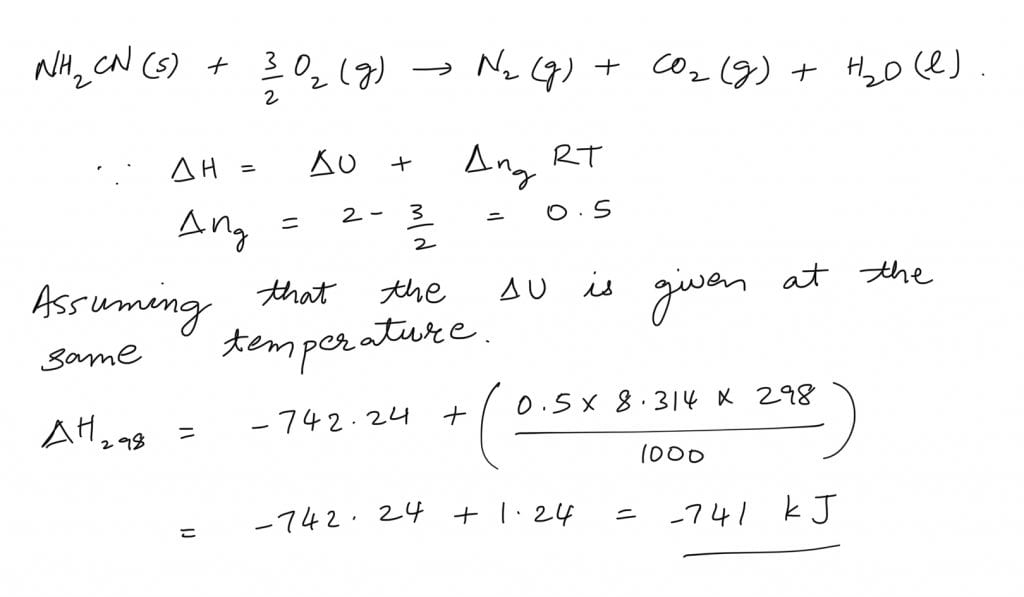 NH₂CN (s) + 3/2 O₂ (g) → N₂ (g) + CO₂ (g) + H₂O (l).
∵ ΔH = ΔU + Δn_g RT
Δn_g = 2 - 3/2 = 0.5
Assuming that the ΔU is given at the
same temperature.
ΔH₂₉₈ = -742.24 + (0.5 x 8.314 x 298 / 1000)
= -742.24 + 1.24 = -741 kJ